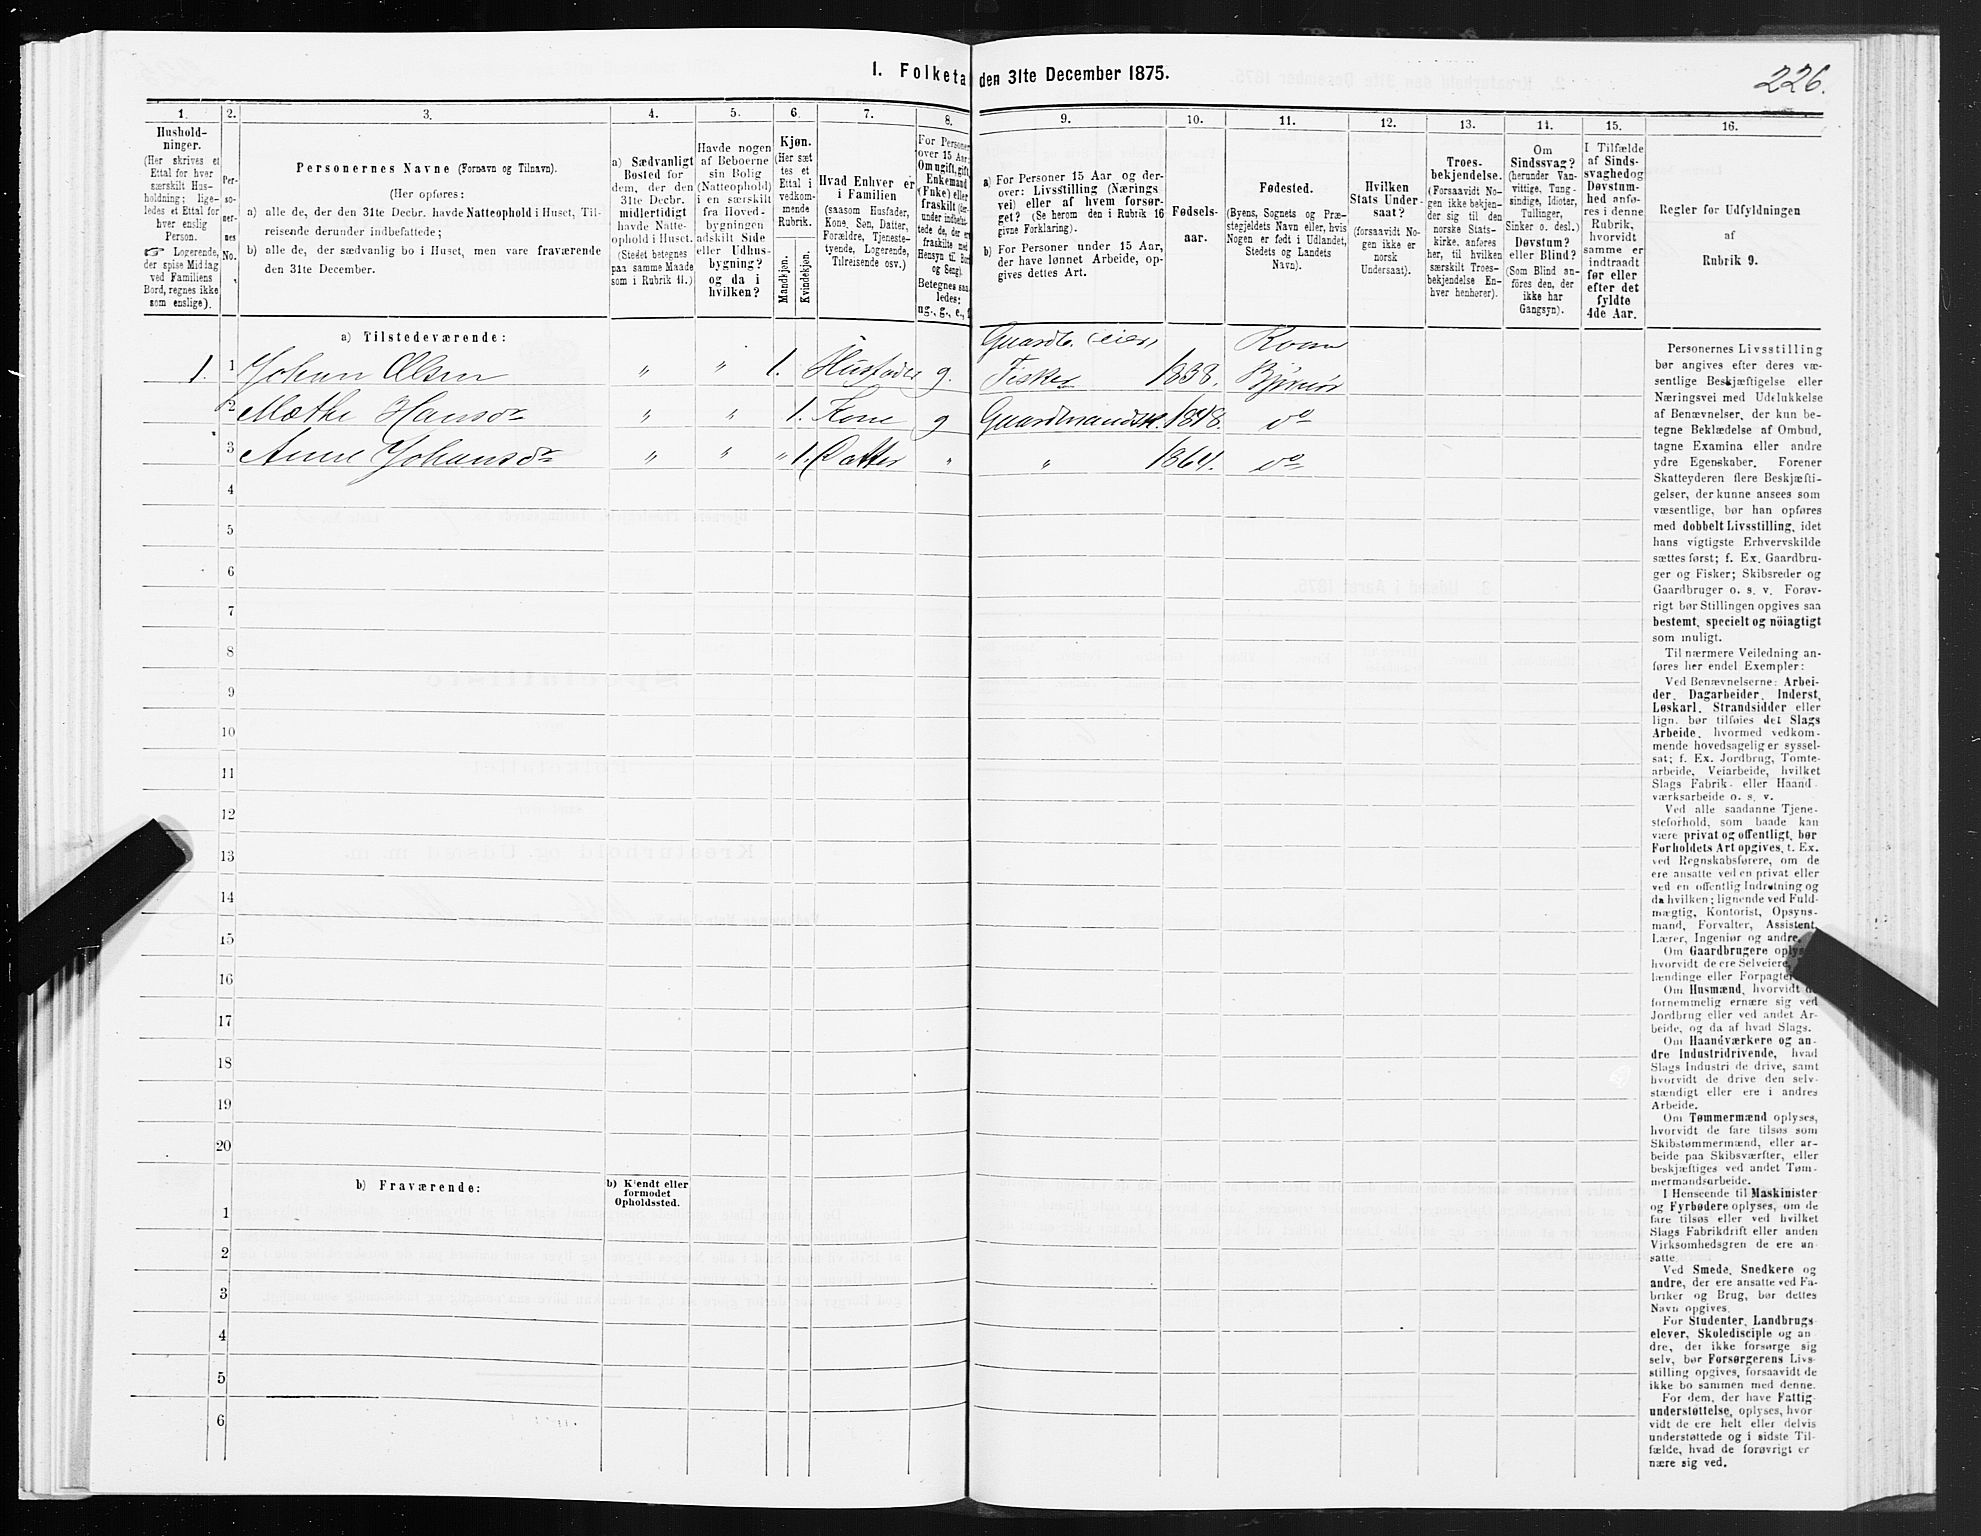 I. Folketal den 31te December 1875.
226.
1. 2. 3. 4. 5. 6. 7. 8. 9. 10. 11. 12. 13. 14. 15. 16.
Hushold-
ninger.
(Her skrives et
Ettal for hver
særskilt Hus-
holdning; lige-
ledes et Ettal for
hver enslig
Person.
☞ Logerende,
der spise Middag
ved Familiens
Bord, regnes ikke
som enslige).
Per-
so-
ner-
nes
No.
Personernes Navne (Fornavn og Tilnavn).
(Her opføres:
a) alle de, der den 31te Decbr. havde Natteophold i Huset, Til-
reisende derunder indbefattede;
b) alle de, der sædvanlig bo i Huset, men vare fraværende
den 31te December.
a) Sædvanligt
Bosted for
dem, der den
31te Decbr.
midlertidigt
havde Natte-
ophold i Huset.
(Stedet betegnes
paa samme Maade
som i Rubrik 11.)
Havde nogen
af Beboerne
sin Bolig
(Natteophold)
i en særskilt
fra Hoved-
bygningen
adskilt Side
eller Udhus-
bygning?
og da i
hvilken?
Kjøn.
(Her sæt
tes et
Ettal i
vedkom-
mende
Rubrik.
Mandkjøn.
Kvindekjøn.
Hvad Enhver er
i Familien
(saasom Husfader,
Kone, Søn, Datter,
Forældre, Tjeneste-
tyende, Logerende,
Tilreisende osv.)
For Personer
over 15 Aar:
Om ugift, gift,
Enkemand
(Enke) eller
fraskilt
Betegnes saa-
ledes:
ug., g., e., f.
a) For Personer 15 Aar og der-
over: Livsstilling (Nærings
vei) eller af hvem forsør-
get? (Se herom den i Rubrik 16
givne Forklaring).
b) For Personer under 15 Aar,
der have lønnet Arbeide, op-
gives dettes Art.
Fødsels-
aar.
Fødested.
(Byens, Sognets og Præ-
stegjeldets Navn eller, hvis
Nogen er født i Udlandet,
Stedets og Landets
Navn).
Hvilken
Stats Under-
saat?
(forsaavidt No-
gen ikke er
norsk
Undersaat).
Troes-
bekjendelse.
(Forsaavidt No-
gen ikke bekjen-
der sig til den
norske Stats-
kirke, anføres
her, til hvilken
særskilt Troes-
bekjendelse En-
hver henhører).
Om
Sindssvag?
(herunder Van-
vittige, Tung-
sindige, Idioter,
Tullinger,
Sinker o. desl.)
Døvstum?
eller Blind?
(Som Blind an-
føres den, der
ikke har
Gangsyn).
I Tilfælde
af Sinds-
svaghed og
Døvstum-
hed anfø-
res i denne
Rubrik,
hvorvidt
samme er
indtraadt
før eller
efter det
fyldte
4de Aar.
Regler for Udfyldningen
af
Rubrik 9.
a) Tilstedeværende:
Gaardb. Roan
1. 1 Johan Olsen " " 1. Husfader g. Fisker 1838. Bjørnør
2 Mæthe Hansdr " " 1. Kone g Gaardmandsk. 1848. do
3 Anne Johansdr " " " 1. Datter " " 1864. do
4
5
6
7
8
9
10
11
12
13
14
15
16
17
18
19
20
b) Fraværende:
b) Kjendt eller
formodet
Opholdssted.
1
2
3
4
5
6
Personernes Livsstilling
bør angives efter deres væ-
sentlige Beskjæftigelse eller
Næringsvei med Udelukkelse
af Benævnelser, der kun be-
tegne Beklædelse af Ombud,
tagne Examina eller andre
ydre Egenskaber. Forener
Skatteyderen flere Beskjæfti-
gelser, der kunne ansees som
væsentlige, bør han opføres
med dobbelt Livsstilling, idet
hans vigtigste Erhvervskilde
sættes først; f. Ex. Gaardbru-
ger og Fisker; Skibsreder og
Gaardbruger o. s. v. Forøv-
rigt bør Stillingen opgives saa
bestemt, specielt og nöiagtigt
som muligt.
Til nærmere Veiledning an-
føres her endel Exempler:
Ved Benævnelserne: Arbei-
der, Dagarbeider, Inderst,
Løskarl, Strandsidder eller
lign. bør tilføies det Slags
Arbeide, hvormed vedkom-
mende hovedsagelig er syssel-
sat; f. Ex. Jordbrug, Tomte-
arbeide, Veiarbeide, hvilket
Slags Fabrik- eller Haand-
værksarbeide o. s. v.
Ved alle saadanne Tjene-
steforhold, som baade kan
være privat og offentligt, bør
Forholdets Art opgives, t. Ex.
ved Regnskabsførere, om de
ere ansatte ved en privat eller
ved en offentlig Indretning og
da hvilken; lignende ved Fuld-
mægtig, Kontorist, Opsyns-
mand, Forvalter, Assistent,
Lærer, Ingeniør og andre.
Om Gaardbrugere oplyses,
hvorvidt de ere Selveiere,
lændinge eller Forpagtere.
Om Husmænd, hvorvidt de
fornemmelig ernære sig ved
Jordbrug eller ved andet Ar-
beide, og da af hvad Slags.
Om Haandværkere og an-
dre Industridrivende, hvad
Slags Industri de drive, samt
hvorvidt de drive den selv-
stændigt eller ere i andres
Arbeide.
Om Tømmermænd oplyses,
hvorvidt de fare tilsøs som
Skibstømmermænd, eller ar-
beide paa Skibsværfter, eller
beskjæftiges ved andet Tøm-
mermandsarbeide.
I Henseende til Maskinister
og Fyrbødere oplyses, om de
fare tilsøs eller ved hvilket
Slags Fabrikdrift eller anden
Virksomhedsgren de ere an-
satte.
Ved Smede, Snedkere og
andre, der ere ansatte ved Fa-
briker og Brug, bør dettes
Navn opgives.
For Studenter, Landbrugs-
elever, Skoledisciple og an-
dre, der ikke forsørge sig
selv, bør Forsørgerens Livs-
stilling opgives, forsaavidt de
ikke bo sammen med denne.
For dem, der have Fattig-
understøttelse, oplyses, hvor
vidt de ere helt eller delvis
understøttede og i sidste Til-
fælde, hvad de forøvrigt er
nære sig ved.